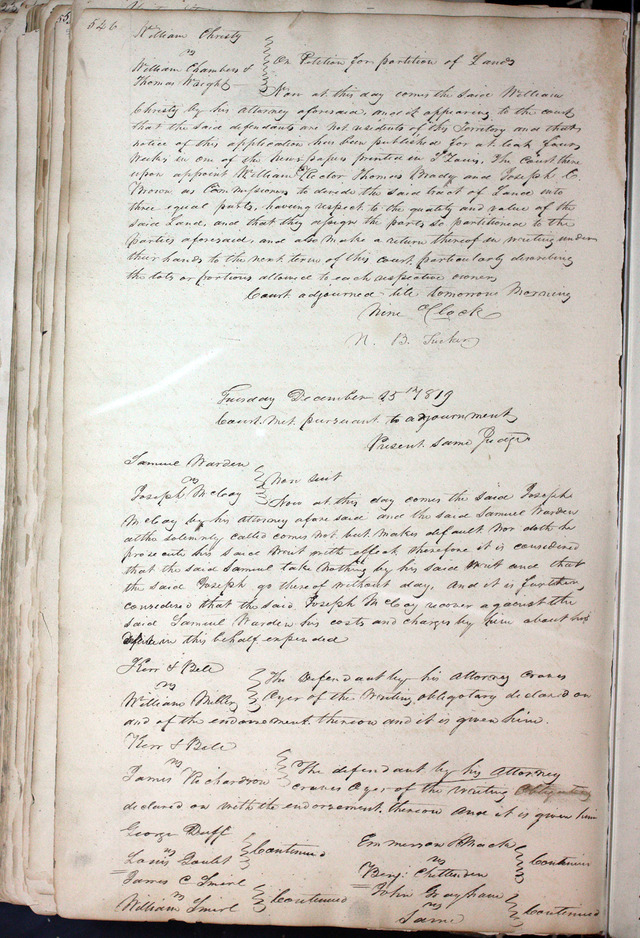 526
William Christy
vs
William Chambers &
Thomas Wright
On Petition for partition of Lands
Now at this day comes the said William
Christy by his attorney aforesaid, and it appearing to the court
that the said defendants are not residents of this Territory and that
notice of this application has been published for at least four
weeks in one of the Newspapers printed in St Louis. The Court there
upon appoint William Rector Thomas Brady and Joseph C.
Brown as Commissioners to devide the said tract of Land into
three equal parts, having respect to the quality and value of the
said Land, and that they assign the parts so partitioned to the
parties aforesaid, and also make a return thereof in writing under
their hands to the next term of this court, particularly describing
the lots or portions allowed to each respective owner
Court adjourned till tomorrow Morning
Nine O'Clock
N. B. Tucker
Tuesday December 1819
Court met pursuant to adjournment
Present same Judge
Samuel Warden
vs
Joseph McCoy
Non suit
Now at this day comes the said Joseph
McCoy by his attorney aforesaid and the said Samuel Warden
altho solemnly called comes not but makes default nor doth he
prosecute his said Writ with effect therefore it is considered
that the said Samuel take nothing by his said writ and that
the said Joseph go thereof without day. And it is further
considered that the said Joseph McCoy recover against the
said Samuel Warden his costs and charges by him about his
in this behalf expended
Kerr & Bell
vs
William Miller
The Defendant by his Attorney craves
Oyer of the writing obligatory declared on
and of the endorsement thereon and it is given him.
Kerr & Bell
vs
James Richardson
The defendant by his Attorney
craves Oyer of the writing Obligatory
declared on with the endorsement thereon And it is given him
George Duff
vs
Louis Goulet
Continued
James C Smirl
vs
William Smirl
Continued
Emmerson &
vs
Benj. Chittenden
Continued
John Grayham
vs
Same
Continued